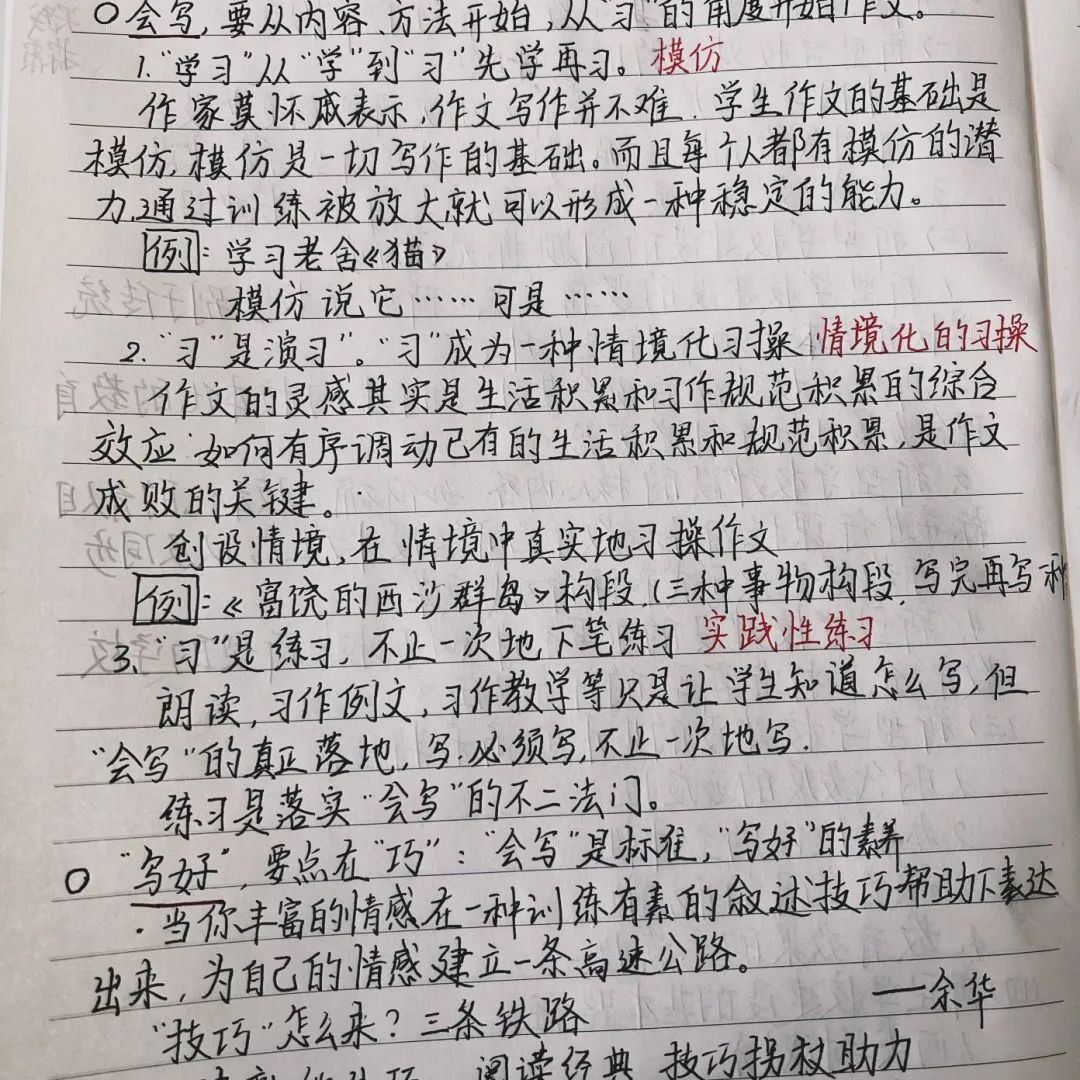 ○会写,要从内容、方法开始,从“习”的角度开始作文。
1.“学习”从“学”到“习”先学再习。模仿
作家莫怀戚表示,作文写作并不难.学生作文的基础是
模仿,模仿是一切写作的基础。而且每个人都有模仿的潜
力,通过训练被放大就可以形成一种稳定的能力。
例:学习老舍《猫》
模仿 说它……可是……
2.“习”是演习”。“习”成为一种情境化习操 情境化的习操
作文的灵感其实是生活积累和习作规范积累的综合
效应.如何有序调动已有的生活积累和规范积累,是作文
成败的关键。
创设情境,在情境中真实地习操作文
例:《富饶的西沙群岛》构段.(三种事物构段,写完再写
3.“习”是练习,不止一次地下笔练习 实践性练习
朗读,习作例文,习作教学等只是让学生知道怎么写,但
“会写”的真正落地,写.必须写,不止一次地写.
练习是落实“会写”的不二法门。
○“写好”,要点在“巧”:“会写”是标准,“写好”的素养
·当你丰富的情感在一种训练有素的叙述技巧帮助下表达
出来,为自己的情感建立一条高速公路。
——余华
“技巧”怎么来?三条铁路
阅读经典 技巧拐杖助力